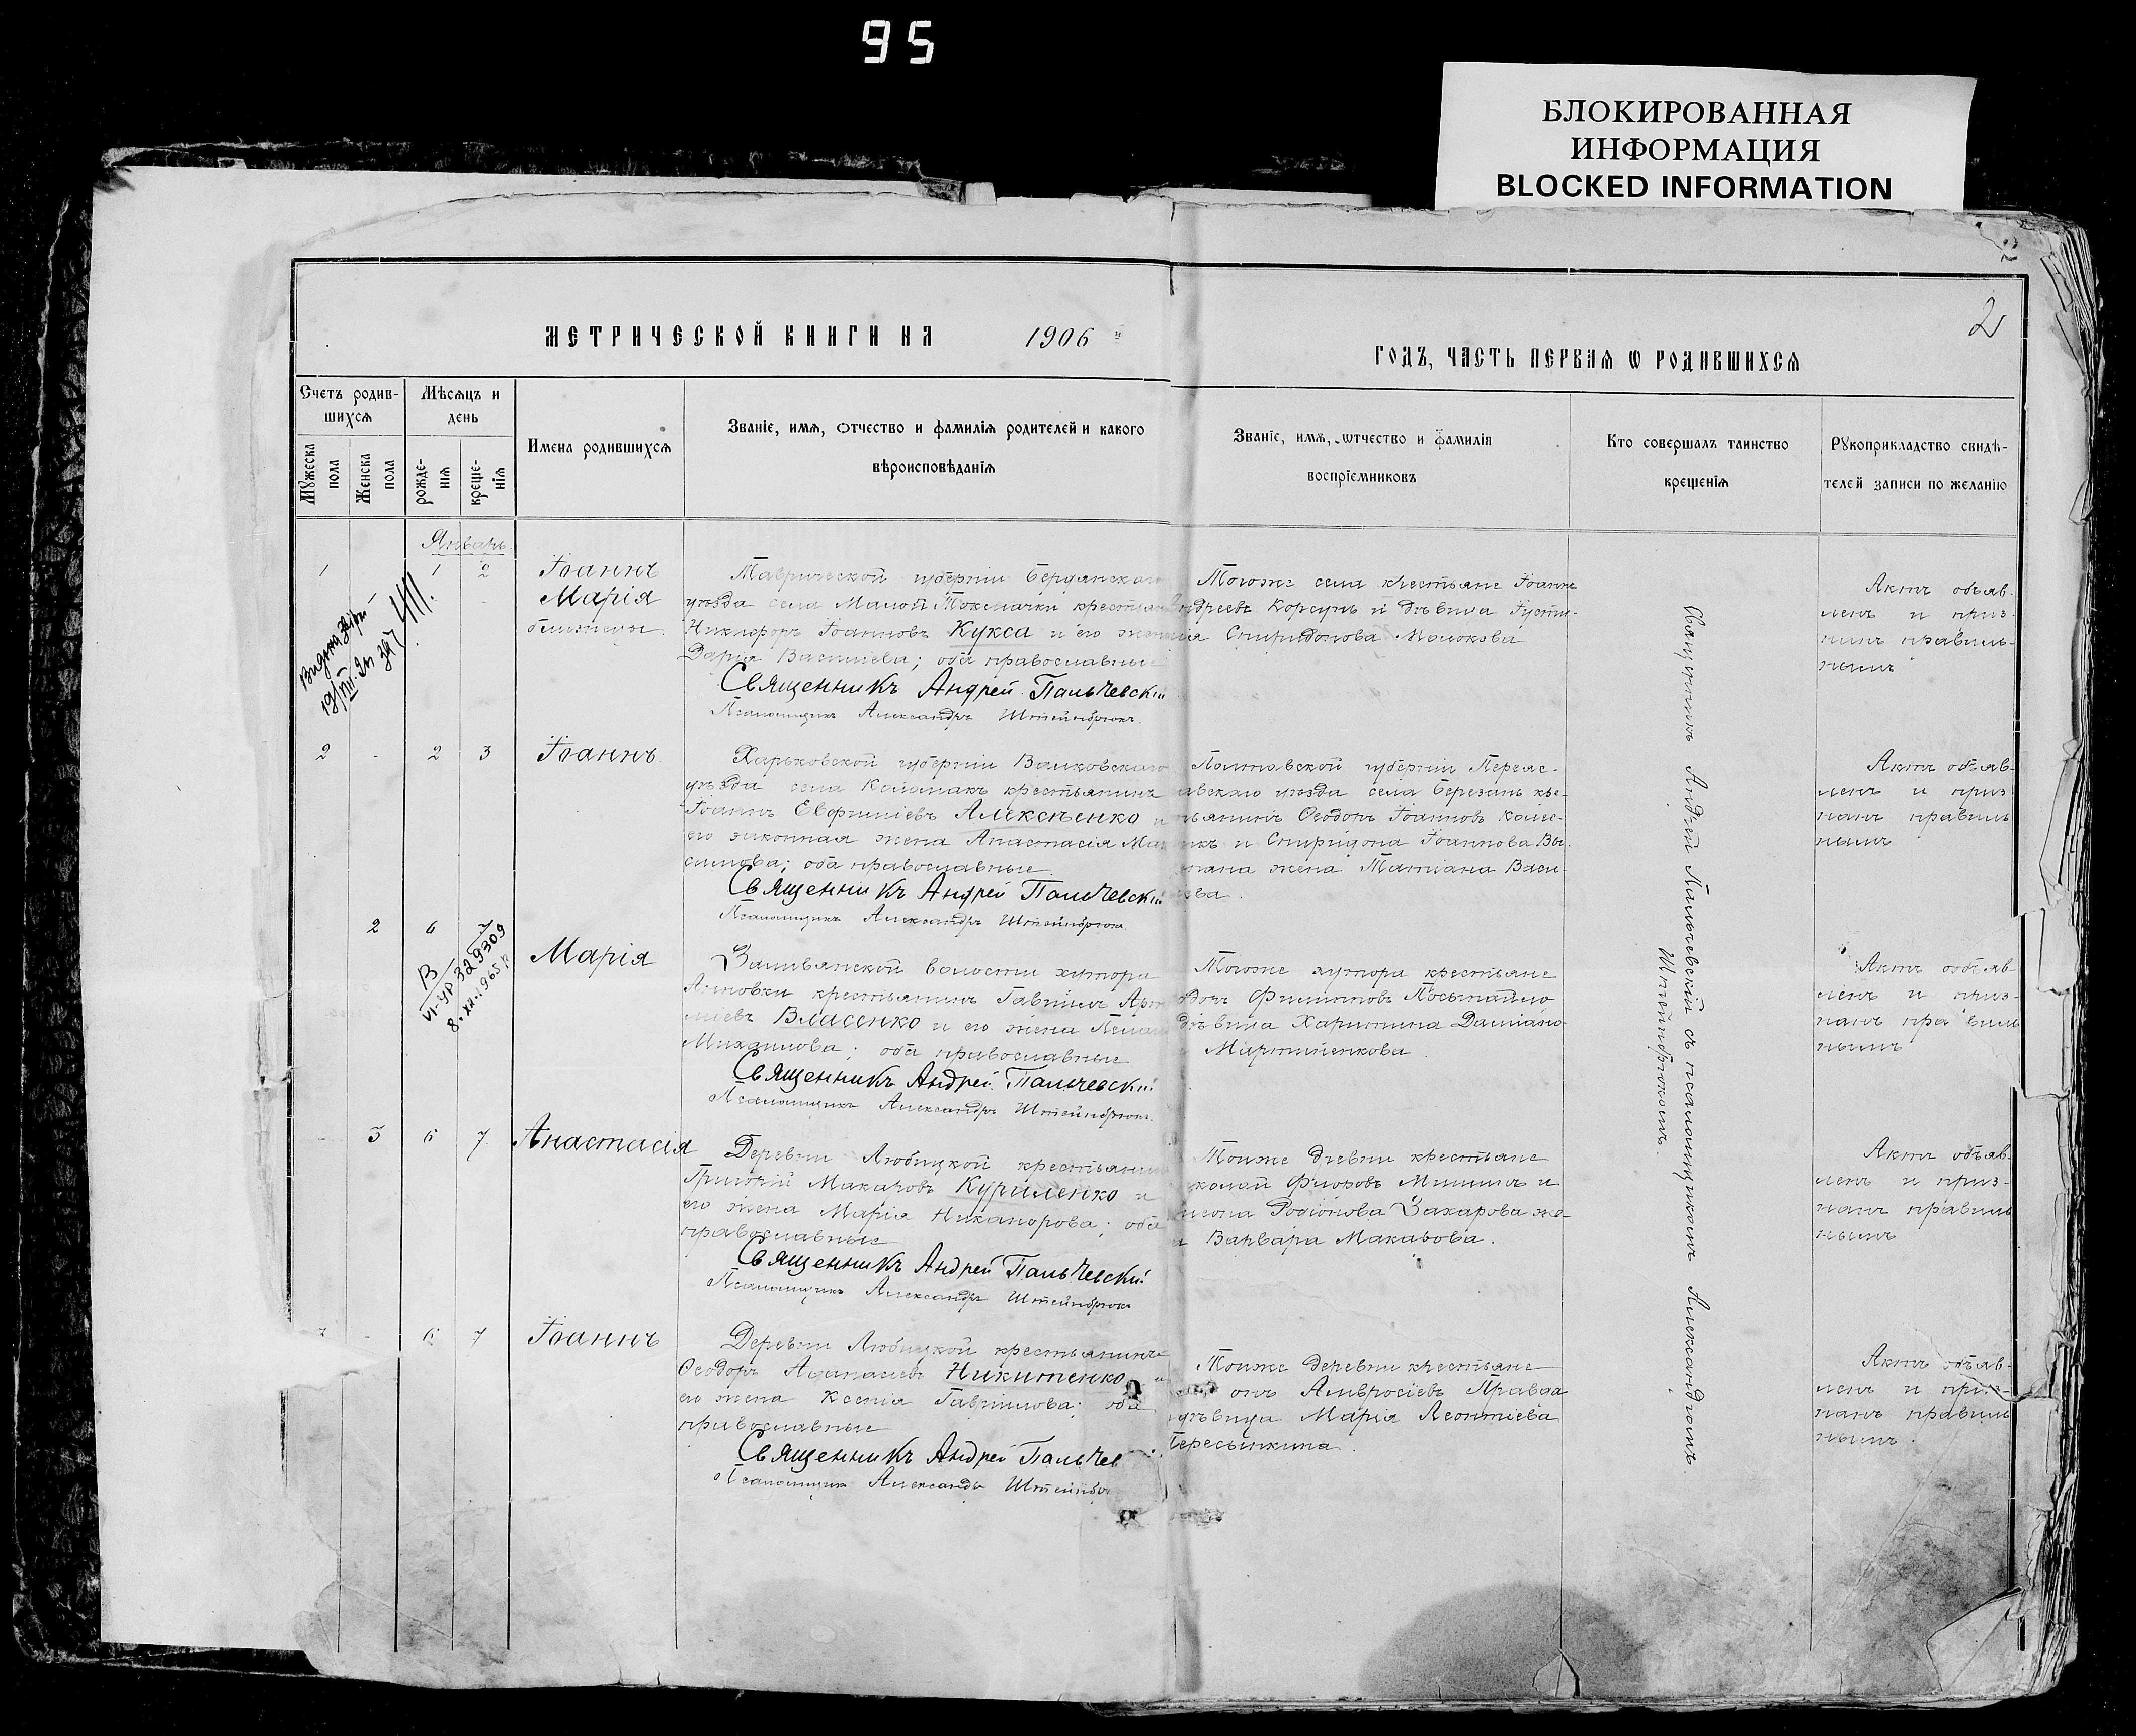 95
БЛОКИРОВАННАЯ
ИНФОРМАЦИЯ
BLOCKED INFORMATION
2
МЕТРИЧЕСКОЙ КНИГИ НА 1906 й
ГОДЪ, ЧАСТЬ ПЕРВАѦ Ѡ РОДИВШИХСѦ
Счетъ родив-
шихсѧ
Мѣсѧцъ и
день
Мужеска
пола
Женска
пола
рожде-
нія
креще-
нія
Имена родившихсѧ
Званіе, имѧ, ѻтчество и фамиліѧ родителей и какого
вѣроисповѣданіѧ
Званіе, имѧ, ѡтчество и фамиліѧ
воспріемниковъ
Кто совершалъ таинство
крещеніѧ
Рукоприкладство свидѣ-
телей записи по желанію
Январь
1 1 2
Іоаннъ
Марія
близнецы.
Таврической губерніи Бердянскаго
уѣзда села Малой Токмачки
Никифоръ Іоанновъ Кукса и его жена
Дарія Василіева; оба православные
Священникъ Андрей Пальчевскій
Псаломщикъ Александръ Штейнбрюкъ.
Тогоже села крестьяне Іоаннъ
Андреевъ Корсунь и дѣвица Іусти-
нія Спиридонова Молокова
Актъ объяв-
ленъ и приз-
нанъ правиль-
нымъ
2 - 2 3
Іоаннъ.
Харьковской губерніи Валковскаго
уѣзда села Коломакъ крестьянинъ
Іоаннъ Евфиміевъ Алексѣенко и
его законная жена Анастасія Мак
симова; оба православные.
Священникъ Андрей Пальчевскій
Псаломщикъ Александръ Штейнбрюкъ
Полтавской губерніи Переяс-
лавскаго уѣзда села Березань кре-
стьянинъ Ѳеодоръ Іоанновъ Колес-
никъ и Спиридона Іоаннова
жена Татіана Васи-
лієва.
Актъ объяв-
ленъ и приз
нанъ правиль
нымъ
2 6 7
В
VI-УР 329309
8.XII.1965 р
Марія
волости хутора
крестьянинъ Гавріилъ
Власенко и его жена
Михаилова; оба православные
Священникъ Андрей Пальчевскій
Псаломщикъ Александръ Штейнбрюкъ.
Тогоже хутора крестьяне
Филипповъ
дѣвица Харитина Даміано-
Мартыненкова
Актъ объяв-
ленъ и приз-
нанъ правиль
нымъ
- 3 6 7.
Анастасія
Деревни Любицкой крестьянинъ
Григорій Макаровъ Куриленко и
его жена Марія Никанорова; оба
православные
Священникъ Андрей Пальчевскій
Псаломщикъ Александръ Штейнбрюкъ
Тоиже древни крестьяне
Фроловъ Мишинъ и
Родіонова Захарова же-
на Варвара Макарова.
Актъ объяв-
ленъ и приз-
нанъ правиль
нымъ
- 6 7
Іоаннъ
Деревни Любицкой крестьянинъ
Ѳеодоръ Аѳанасіевъ Никитенко и
его жена Ксенія Гавріилова; оба
православные
Священникъ Андрей Пальчев
Псаломщикъ Александръ Штейнбр
Тоиже деревни крестьяне
Амвросіевъ Правда
дѣвица Марія Леонтіева
Пересыпкина.
Актъ объяв-
ленъ и приз-
нанъ правиль
нымъ.
Священникъ Андрей Пальчевскій съ псаломщикомъ Александромъ
Штейнбрюкомъ.